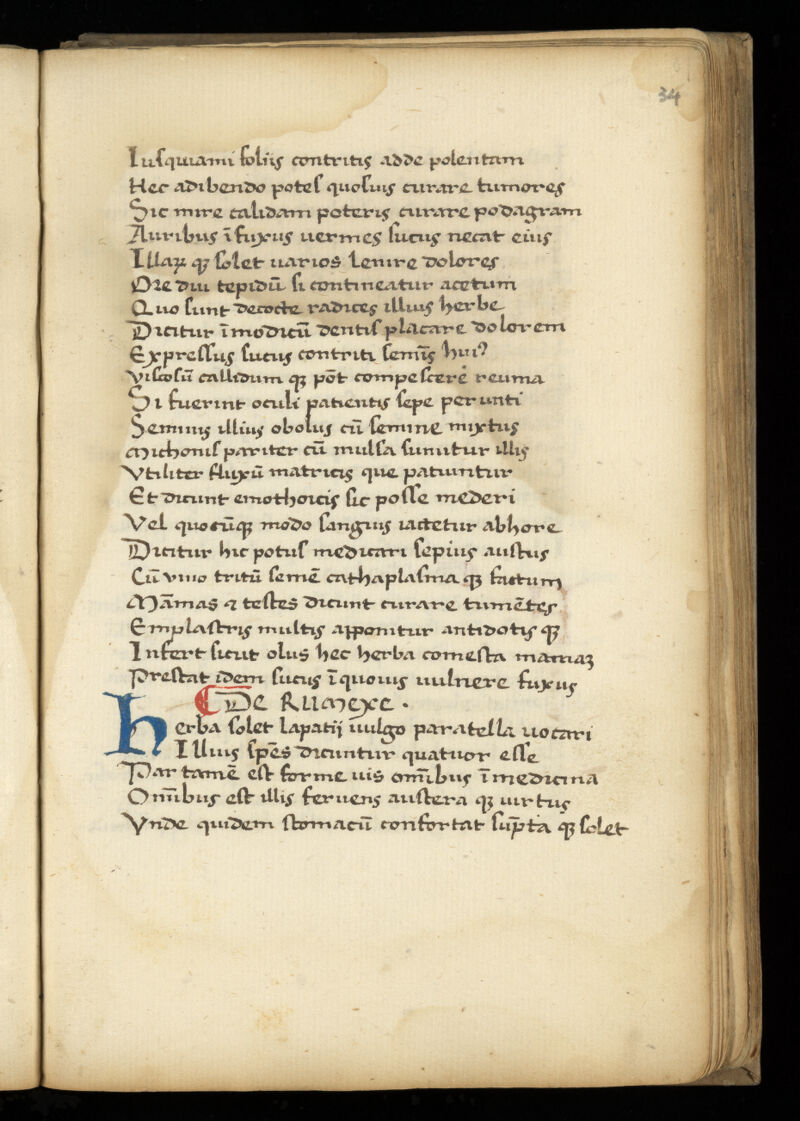 34
Iusquiami foliis contritis adde polentam
Hec adibendo potes quosuis curare tumores
Sic mire calidam poteris curare podagram
Auribus ĩfuxus uermes sucus necat eius
Illaꝝ qꝫ solet uarios lenire dolores
Ore diu tepidũ si contineatur acetum
Quo sunt decocte radices illius herbe
Dicitur ĩmodicũ dentis placare dolorem
Expressus sucus contriti semĩs hui⁹
Viscosũ callidum qꝫ põt compescere reuma
Si fuerint oculi patientis sepe per uncti
Seminis illius obolus cũ semine mixtus
Miconis pariter cũ mulsa sumitur illis
Vtiliter fluxũ matricis que patiuntur
Et dicunt emothoicis sic posse mederi
Vel quocũqꝫ modo sanguis iactetur abhore
Dicitur hic potus medicari sepius austus
Cũ vino tritũ semẽ cathaplasma qꝫ factum
Mãmas ⁊ testes dicunt curare tumẽtes
Emplastris multis apponitur antidotis qꝫ
Infert sicut olus hec herba comesta maniaꝫ
Prestat idem sucus ĩquouis uulnere fuxus
De Rumexe.
Herba solet lapatij uulgo paratella uocari
Illius spẽs dicuntur quatuor esse
Par tamẽ est forme uis omĩbus ĩmedicina
Omĩbus est illis feruens austera qꝫ uirtus
Vnde quidem stomacũ confortat sũpta qꝫ solet